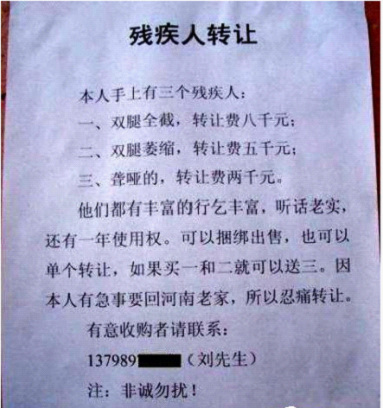 残疾人转让
本人手上有三个残疾人：
一、双腿全截，转让费八千元；
二、双腿萎缩，转让费五千元；
三、聋哑的，转让费两千元。
他们都有丰富的行乞丰富，听话老实，
还有一年使用权。可以捆绑出售，也可以
单个转让，如果买一和二就可以送三。因
本人有急事要回河南老家，所以忍痛转让。
有意收购者请联系：
137989（刘先生）
注：非诚勿扰！